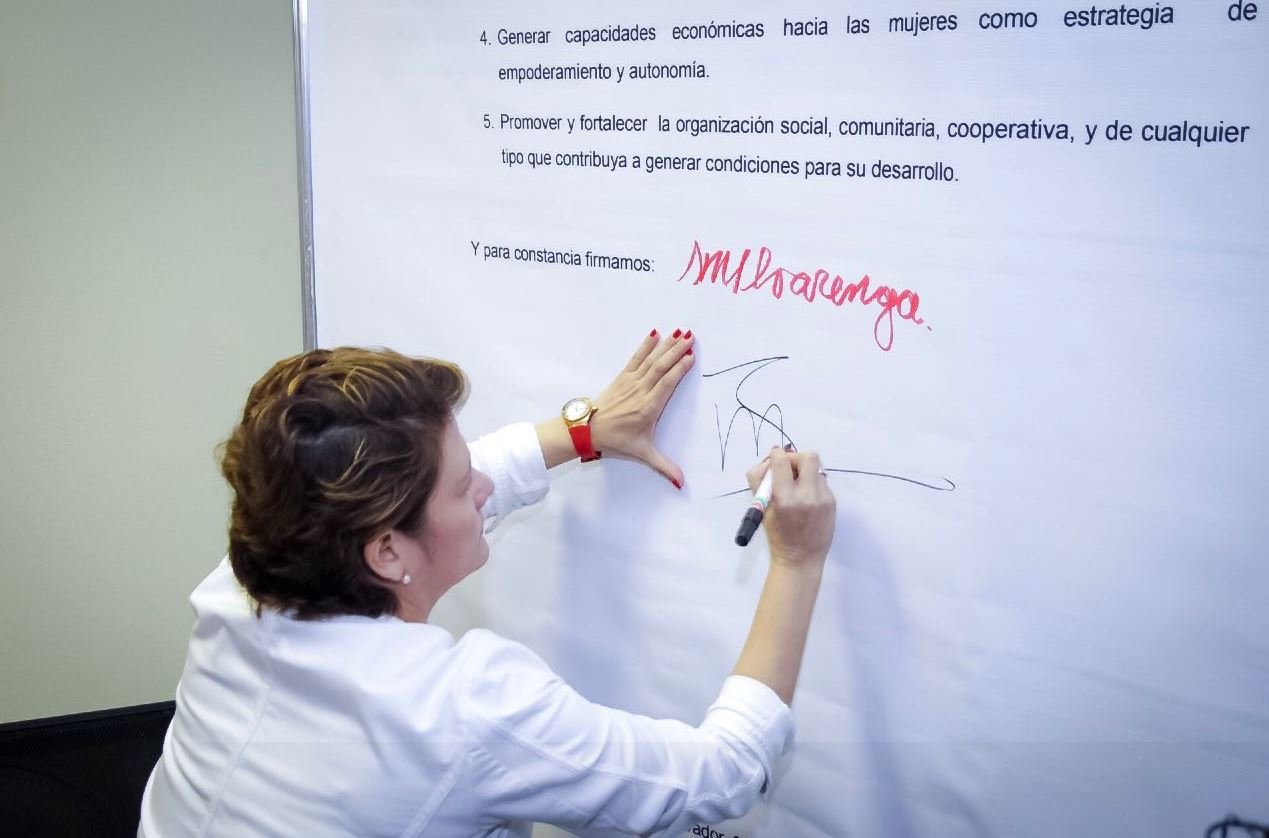 4. Generar capacidades económicas hacia las mujeres como estrategia de
empoderamiento y autonomía.
5. Promover y fortalecer la organización social, comunitaria, cooperativa, y de cualquier
tipo que contribuya a generar condiciones para su desarrollo.
Y para constancia firmamos: